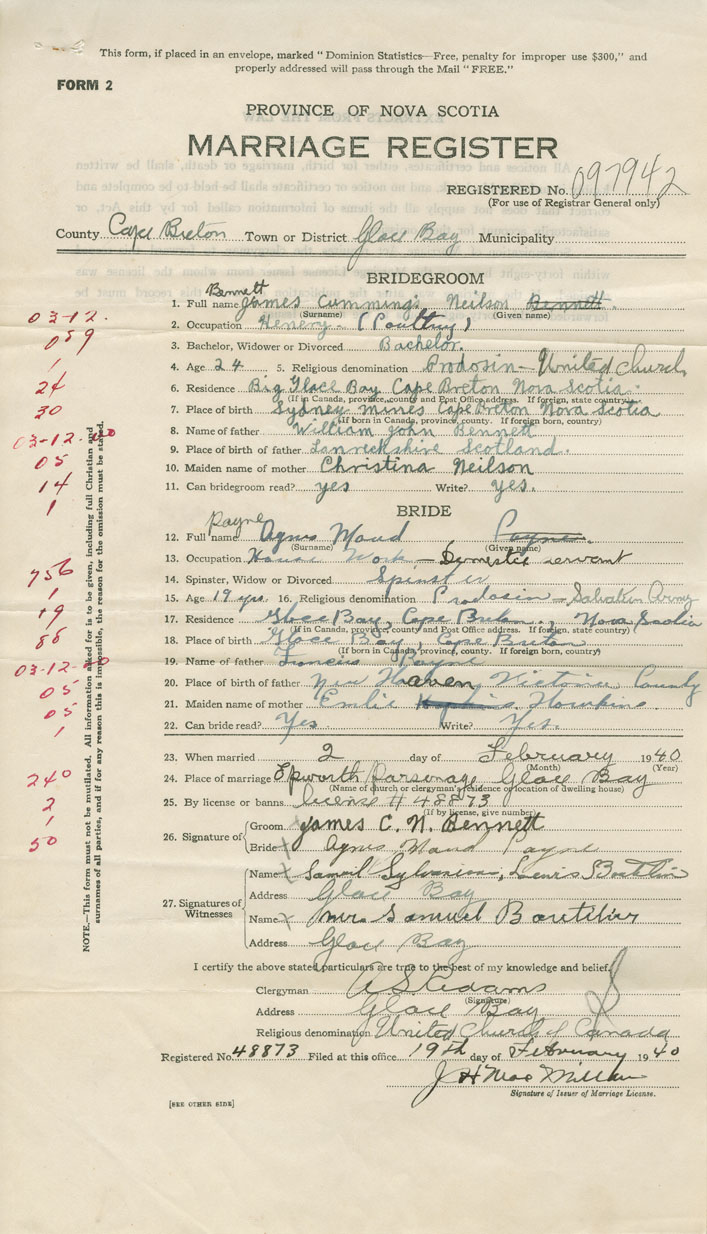 This form, if placed in an envelope, marked "Dominion Statistics—Free, penalty for improper use $300," and
properly addressed will pass through the Mail "FREE."
FORM 2
PROVINCE OF NOVA SCOTIA
MARRIAGE REGISTER
REGISTERED No. 097942
(For use of Registrar General only)
County Cape Breton Town or District Glace Bay Municipality
BRIDEGROOM
Bennett
1. Full name James Cummings Neilson Bennett
(Surname) (Given name)
2. Occupation Henery - (Poultry)
3. Bachelor, Widower or Divorced Bachelor.
4. Age 24 5. Religious denomination Prodosin - United Church
6. Residence Big Glace Bay Cape Breton Nova Scotia.
(If in Canada, province, county and Post Office address. If foreign, state country)
7. Place of birth Sydney mines Cape Breton Nova Scotia
(If born in Canada, province, county. If foreign born, country)
8. Name of father William John Bennett
9. Place of birth of father Lanrickshire Scotland.
10. Maiden name of mother Christina Neilson
11. Can bridegroom read? yes Write? yes.
BRIDE
Payne
12. Full name Agnes Maud Payne.
(Surname) (Given name)
13. Occupation House Work - Domestic servant
14. Spinster, Widow or Divorced Spinster
15. Age 19 yrs 16. Religious denomination Prodosin - Salvation Army
17. Residence Glace Bay, Cape Breton, Nova Scotia
(If in Canada, province, county and Post Office address. If foreign, state country)
18. Place of birth Glace Bay, Cape Breton
(If born in Canada, province, county. If foreign born, country)
19. Name of father Francis Payne
20. Place of birth of father New Haven, Victoria County
21. Maiden name of mother Emlie Hawkins
22. Can bride read? Yes Write? Yes.
23. When married 2 day of February 1940
(Month) (Year)
24. Place of marriage Epworth Parsonage Glace Bay
(Name of church or clergyman's residence or location of dwelling house)
25. By license or banns license # 48873
(If by license, give number)
26. Signature of Groom James C. N. Bennett
Bride x Agnes Maud Payne
27. Signatures of Witnesses
Name x Samuel Sylvanious, Lewis Boutilier
Address Glace Bay
Name x Mrs. Samuel Boutilier
Address Glace Bay
I certify the above stated particulars are true to the best of my knowledge and belief.
Clergyman A S Adams
(Signature)
Address Glace Bay
Religious denomination United Church of Canada
Registered No. 48873 Filed at this office 19th day of February 1940
J H MacMillan
Signature of Issuer of Marriage License.
[SEE OTHER SIDE]
NOTE.—This form must not be mutilated. All information asked for is to be given, including full Christian and
surnames of all parties, and if for any reason this is impossible, the reason for the omission must be stated.
03-12.
059
1
24
30
03-12-00
05
14
1
756
1
19
86
03-12-00
05
05
1
240
2
1
50